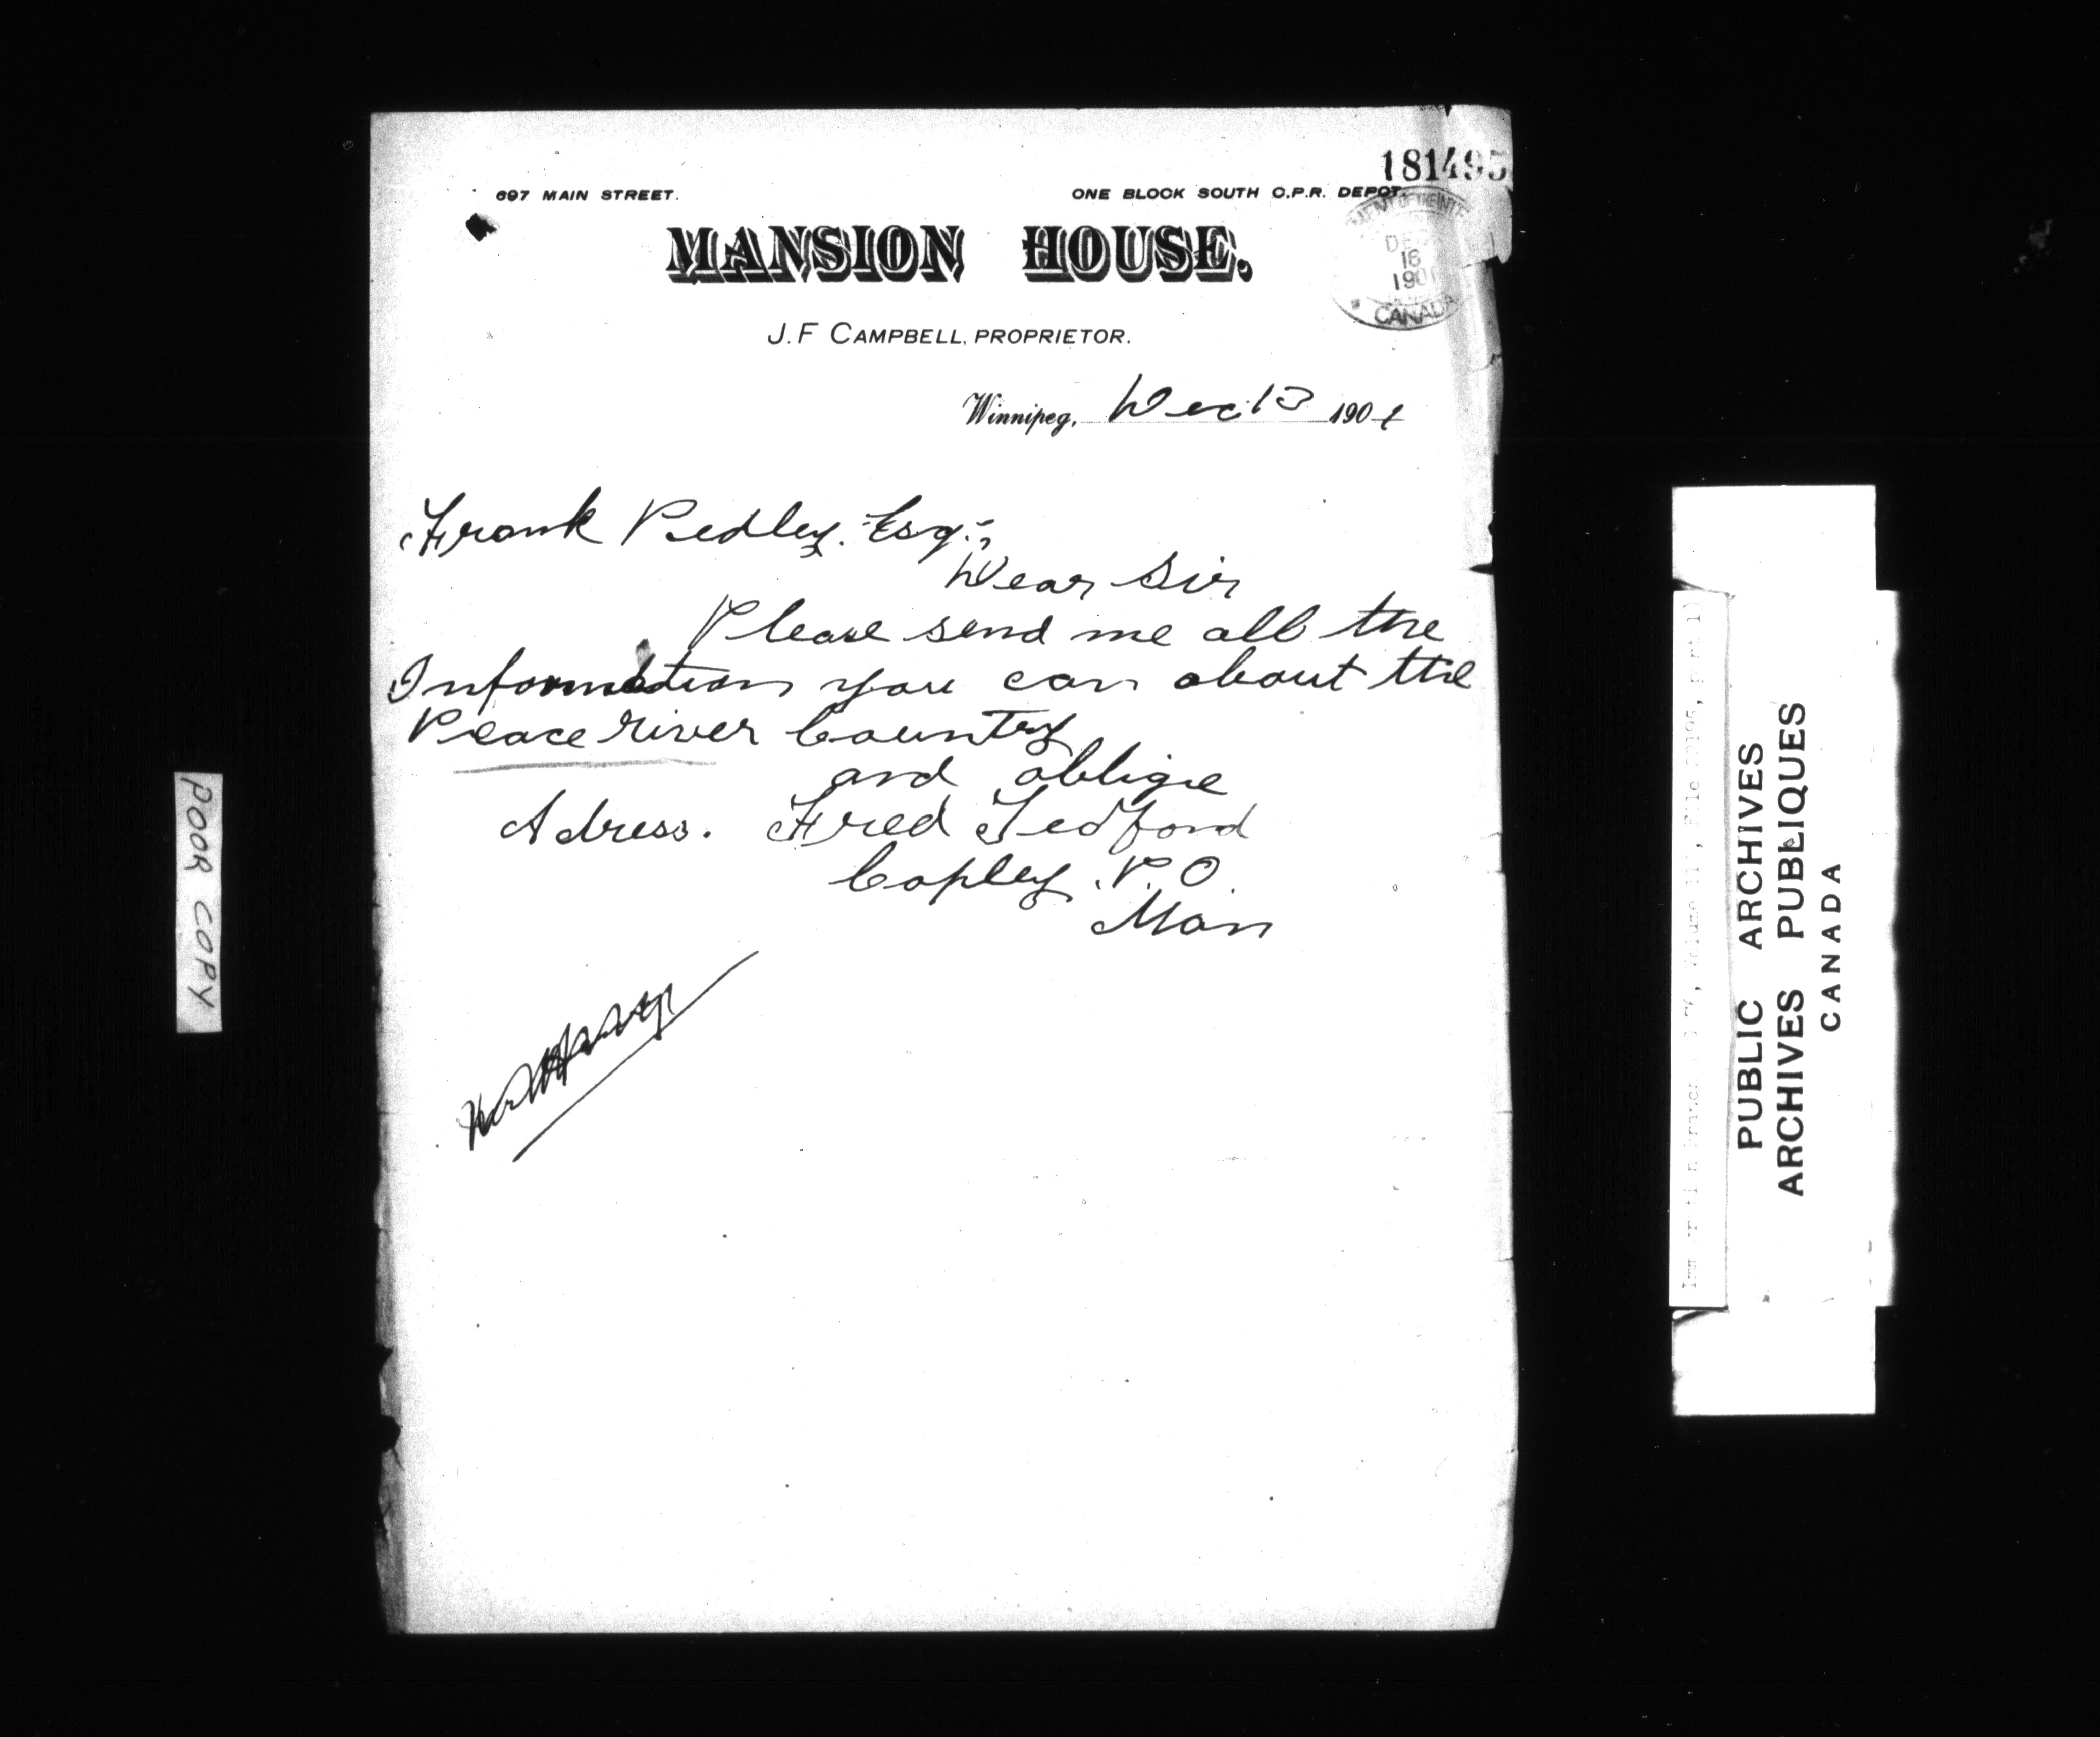 181495
697 MAIN STREET.
ONE BLOCK SOUTH C.P.R. DEPOT.
MANSION HOUSE.
J. F CAMPBELL, PROPRIETOR.
16
190
CANADA
Winnipeg, Dec 13 1901
Frank Pedley. Esq.,
Dear Sir
Please send me all the
Information you can about the
Peace river Country
and oblige
Adress. Fred Tedford
Copley P.O.
Man
POOR COPY
PUBLIC ARCHIVES
ARCHIVES PUBLIQUES
CANADA